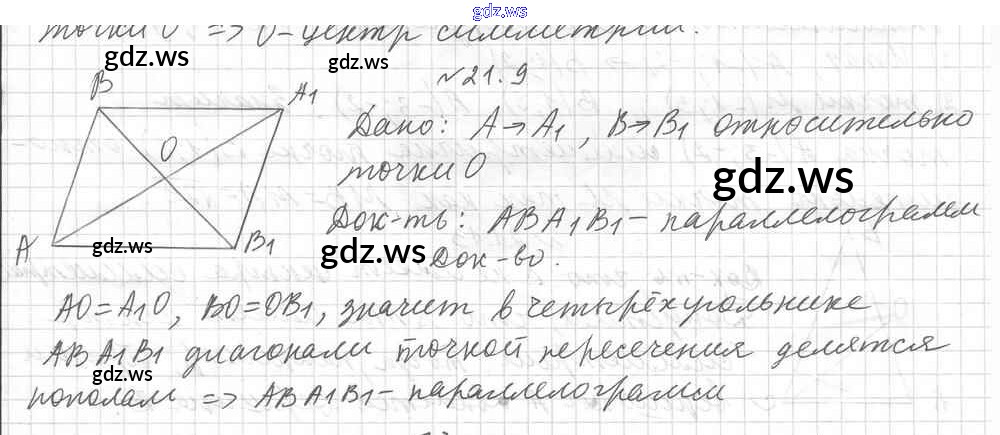 gdz.ws
точки O => O - центр симметрии.
gdz.ws
gdz.ws
№21.9
B
A1
O
A
B1
Дано: A→A1, B→B1 относительно
точки O
gdz.ws
Док-ть: ABA1B1 - параллелограмм
gdz.ws
gdz.ws
Док-во.
AO=A1O, BO=OB1, значит в четырёхугольнике
ABA1B1 диагонали точкой пересечения делятся
gdz.ws
gdz.ws
пополам => ABA1B1 - параллелограмм
gdz.ws